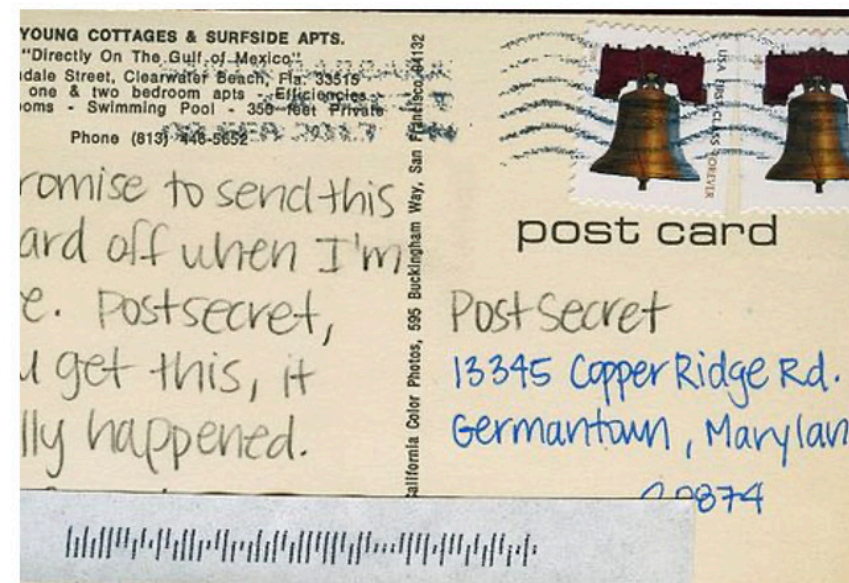 YOUNG COTTAGES & SURFSIDE APTS.
"Directly On The Gulf of Mexico"
dale Street, Clearwater Beach, Fla. 33515
one & two bedroom apts - Efficiencies -
oms - Swimming Pool - 350 feet Private
Phone (813) 446-5652
romise to send this
ard off when I'm
e. Postsecret,
u get this, it
lly happened.
California Color Photos, 595 Buckingham Way, San Francisco 94132
USA FIRST-CLASS FOREVER
post card
PostSecret
13345 Copper Ridge Rd.
Germantown, Marylan
20874